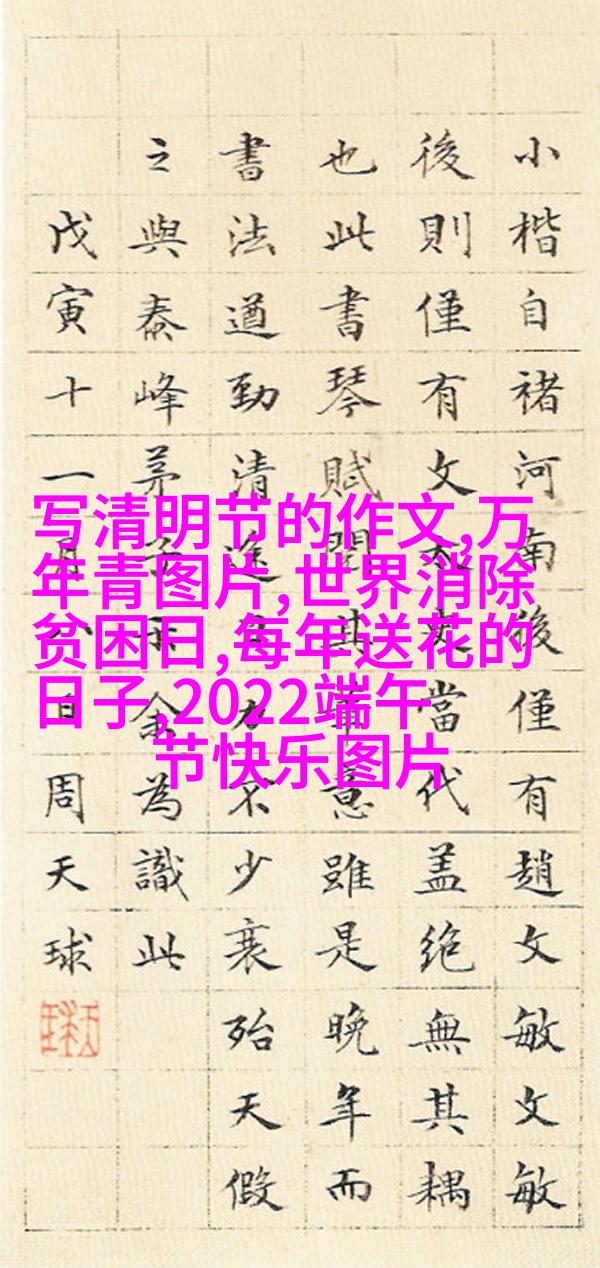 小楷自褚河南後僅有趙文敏文敏
後則僅有文太史當代盖絶無其耦
也此書琴賦其意雖是晚年而
書法遒勁清不少衰殆天假
之與泰峰茅子余為識此
戊寅十一月日周天球
写清明节的作文,万
年青图片,世界消除
贫困日,每年送花的
日子,2022端午
节快乐图片